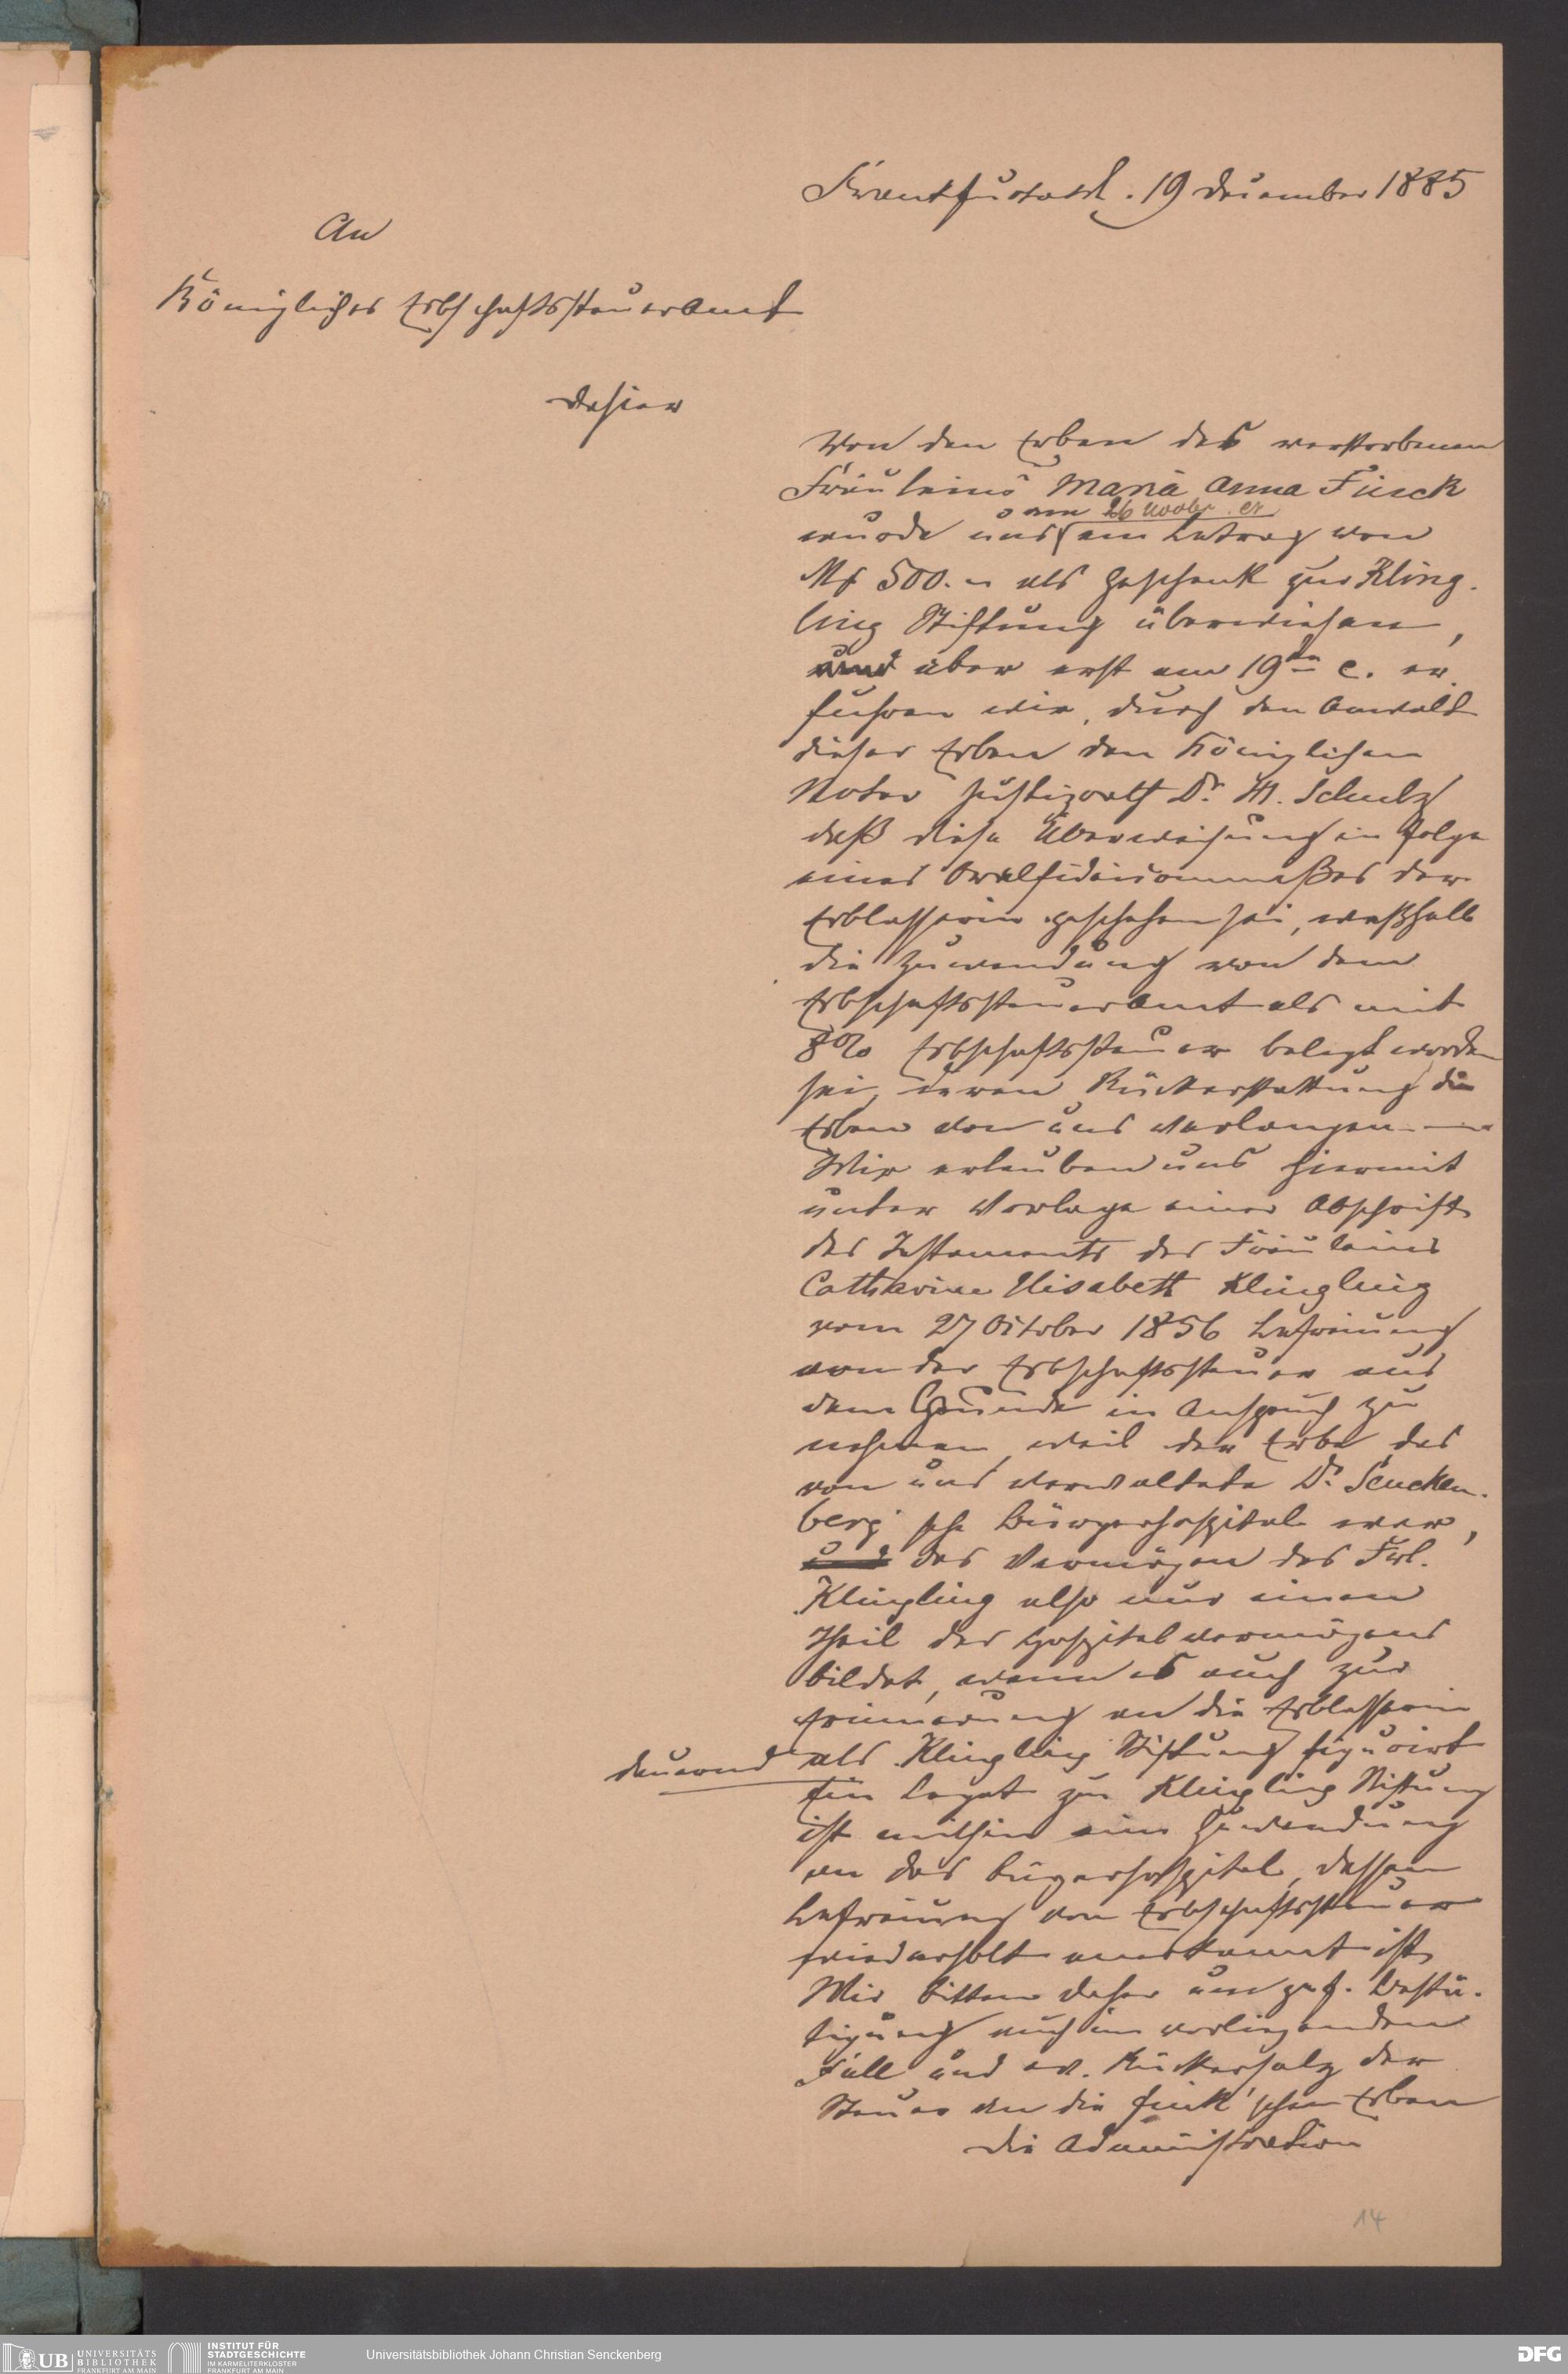 Frankfurt a/M. 19 December 1885
An
Königliches Erbschaftssteueramt
dahier
Von den Erben des verstorbenen
Fräuleins Maria Anna Finck
am 26 Novbr. cr
wurde uns ein Betrag von
Mk 500.– als Geschenk zur Kling-
ling Stiftung überwiesen,
und aber erst am 19ten c. er-
fuhren wir, durch den Anwalt
dieser Erben den Königlichen
Notar Justizrath Dr. M. Schulz
daß diese Überweisung in Folge
eines Oralfideicommißes der
Erblasserin geschehen sei, weßhalb
die Zuwendung von dem
Erbschaftssteueramt als mit
8% Erbschaftssteuer belegt worden
sei, deren Rückerstattung die
Erben von uns verlangen. –
Wir erlauben uns hiermit
unter Vorlage einer Abschrift
des Testaments des Fräuleins
Catharine Elisabeth Klingling
vom 27 October 1856 Befreiung
von der Erbschaftssteuer aus
dem Grunde in Anspruch zu
nehmen, weil der Erbe das
von uns verwaltete Dr. Sencken-
berg'sche Bürgerhospital war,
und das Vermögen des Frl.
Klingling also nur einen
Theil des Hospitalvermögens
bildet, wenn es auch zur
Erinnerung an die Erblasserin
dauernd als Klingling Stiftung figurirt
Ein Legat zur Klingling Stiftung
ist mithin eine Zuwendung
an das Bürgerhospital, dessen
Befreiung von Erbschaftssteuer
wiederholt anerkannt ist.
Wir bitten daher um gef. Bestä-
tigung auch im vorliegenden
Fall und ev. Rückersatz der
Steuer an die Finck'schen Erben
Die Administration
14
UB UNIVERSITÄTS
BIBLIOTHEK
FRANKFURT AM MAIN
INSTITUT FÜR
STADTGESCHICHTE
IM KARMELITERKLOSTER
FRANKFURT AM MAIN
Universitätsbibliothek Johann Christian Senckenberg
DFG